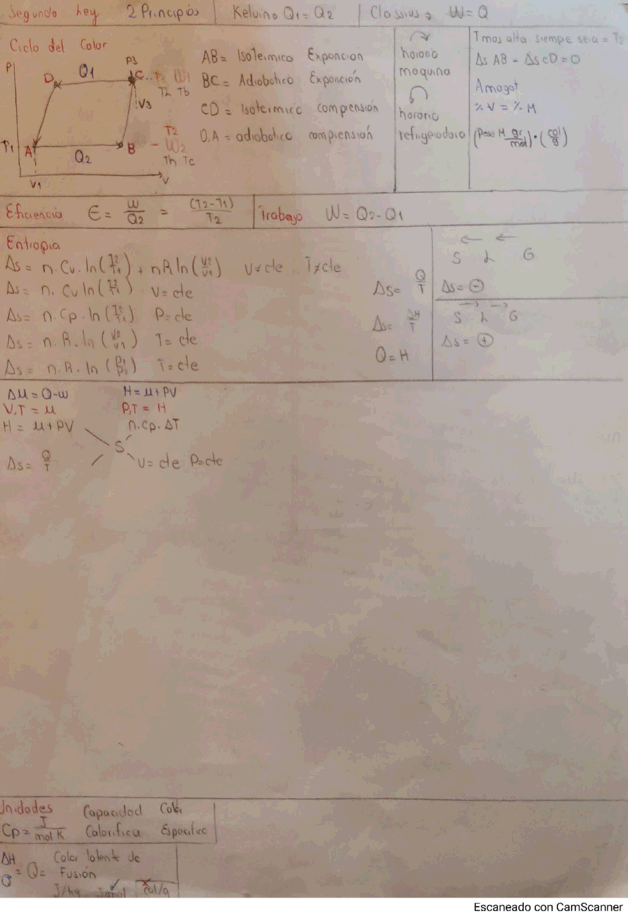 Segunda Ley 2 Principios Kelvin Q1 = Q2 Classius W = Q
Ciclo del Calor
P
D Q1 P3 C
Th Tb
V3
T2
W2
Th Tc
T1 A Q2 B
V1 V
AB = Isotermico Exponcion
BC = Adiobotico Expoción
CD = Isotermico comprensión
D.A = adiobotico comprensión
horario
maquina
horario
refrigerador
T mas alta siempre seria = T2
Δs AB - Δs CD = 0
Amagat
% V = % M
(Peso M gr/mol) • (cal/g)
Eficiencia ϵ = W/Q2 = (T2-T1)/T2 Trabajo W = Q2-Q1
Entropia
Δs = n. Cv. ln(T2/T1) + nR ln(V2/V1) V≠cte T≠cte
Δs = n. Cv ln(T2/T1) V= cte
Δs = n. Cp. ln(T2/T1) P= cte
Δs = n. R. ln(V2/V1) T= cte
Δs = n. R. ln(P1/P2) T= cte
Δs= Q/T
Δs= ΔH/T
Q=H
S L G
Δs = ⊖
S L G
Δs = ⊕
ΔU = Q-W H = u+PV
V,T = u P,T = H
H = u+PV n.cp.ΔT
S
Δs = Q/T V= cte P=cte
Unidades Capacidad Calor
Cp = J/mol K Calorifica Especifico
ΔH Calor latente de
= Q= Fusión
J/kg J/mol cal/g
Escaneado con CamScanner